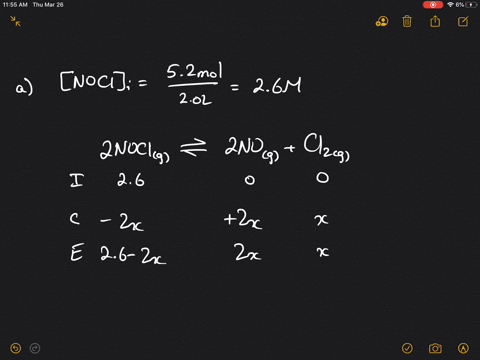 11:55 AM Thu Mar 26
6%
a) [NOCl]i = 5.2mol / 2.0L = 2.6M
2NOCl(g) ⇌ 2NO(g) + Cl2(g)
I 2.6 0 0
C - 2x +2x x
E 2.6-2x 2x x